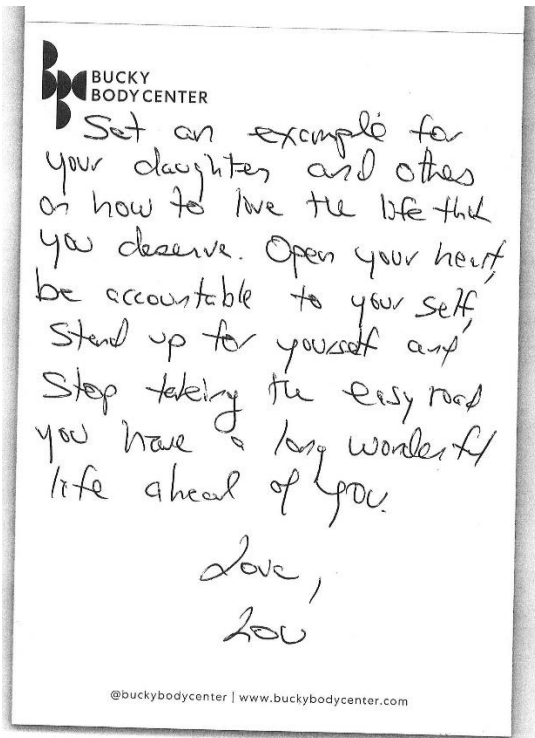 BUCKY
BODY CENTER
Set an example for
your daughters and others
on how to love the life that
you deserve. Open your heart,
be accountable to your self,
Stand up for yourself and
Stop takeing the easy road
you have a long wonderful
life ahead of you.
Love,
Lou
@buckybodycenter | www.buckybodycenter.com